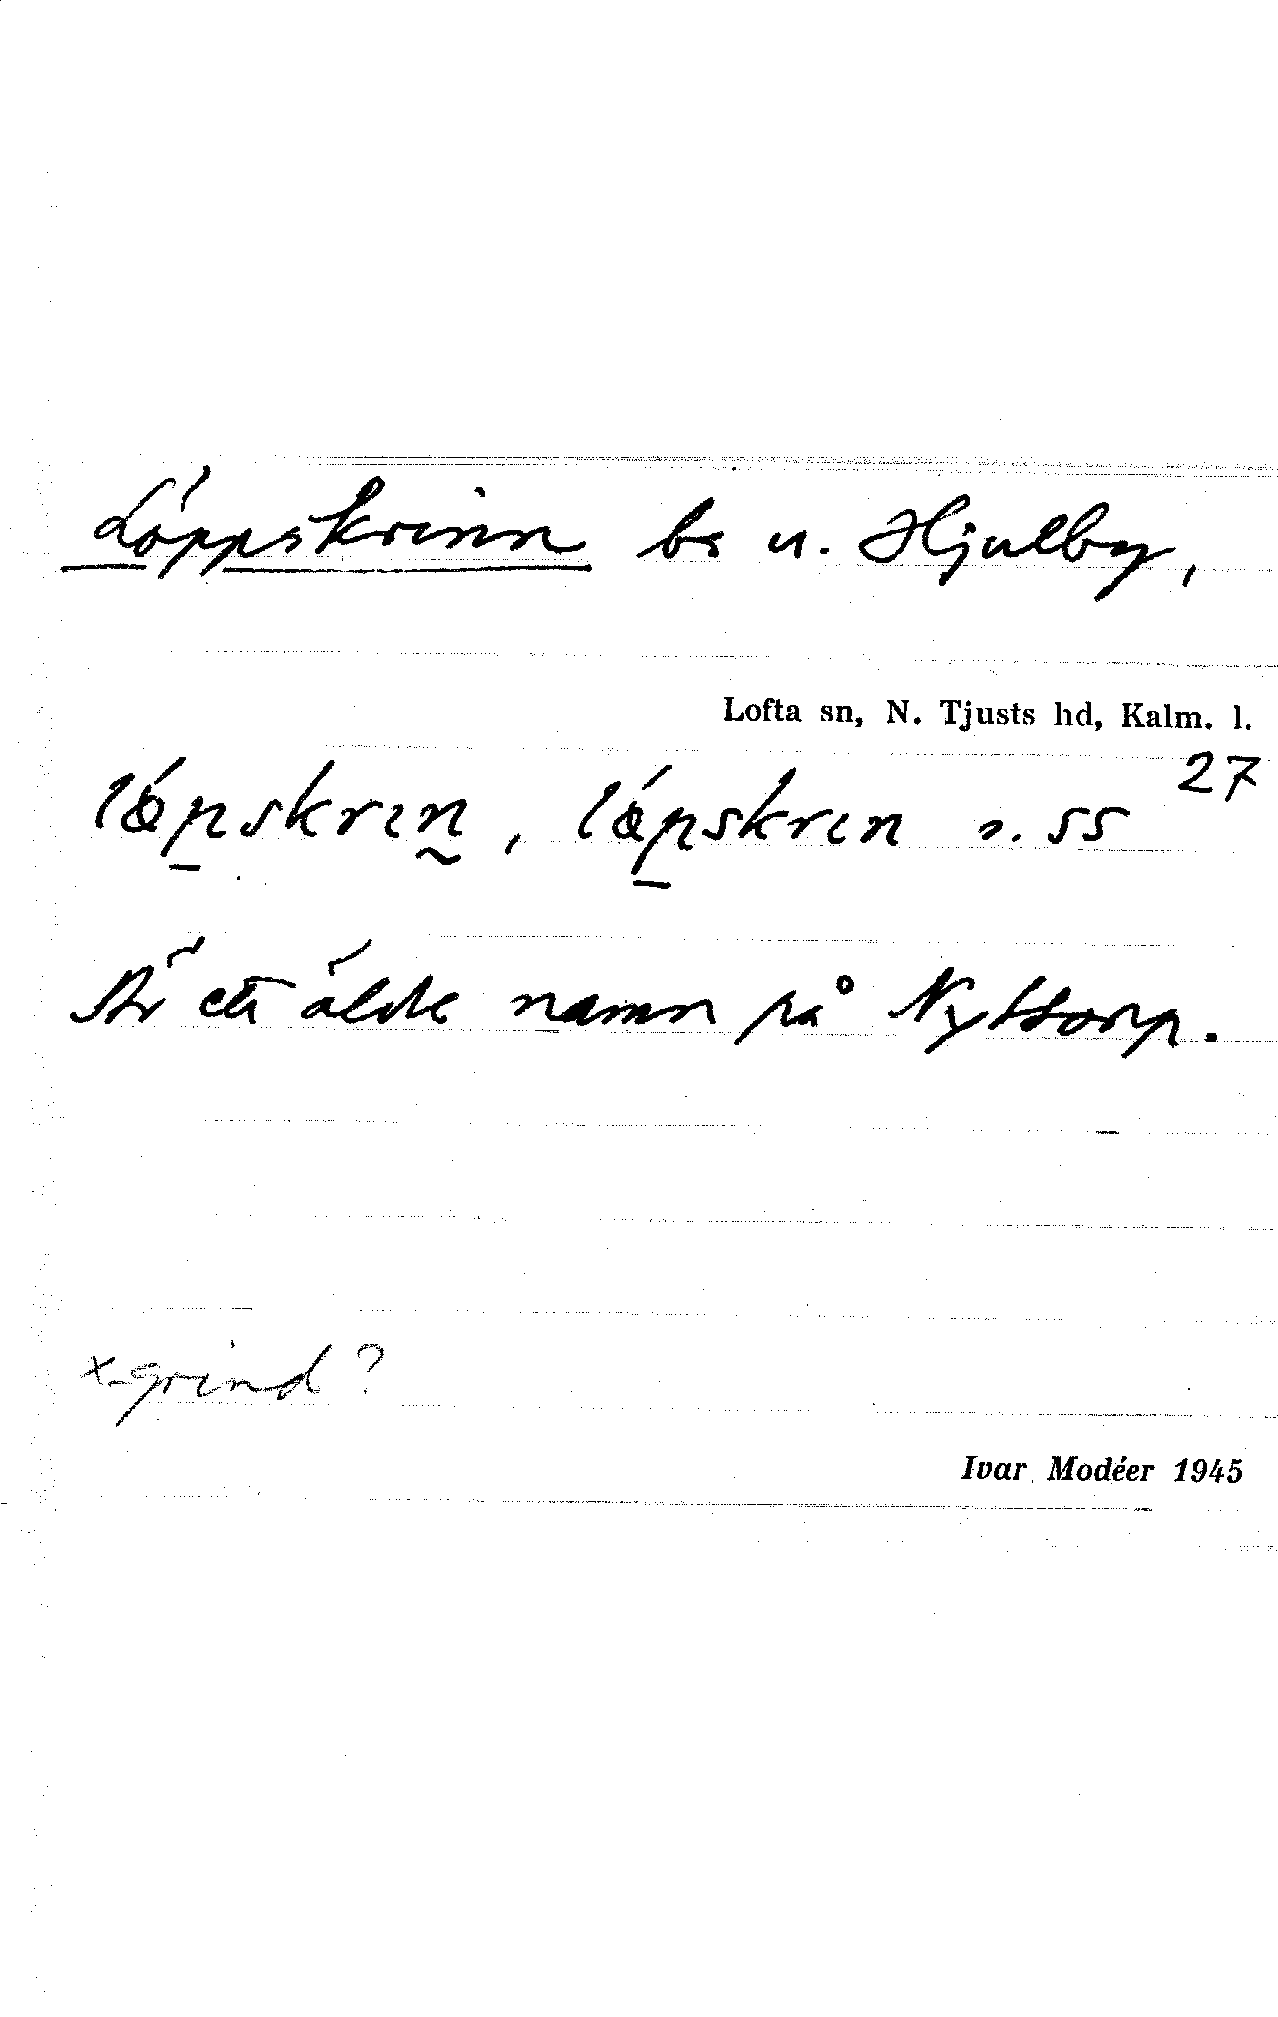 Löppskrinn bs u. Hjulby,
Lofta sn, N. Tjusts hd, Kalm. l.
27
lǿp̠skrın̰, lǿp̠skrın s. 55
Är ett äldre namn på Nyttorp.
x-grind?
Ivar Modéer 1945